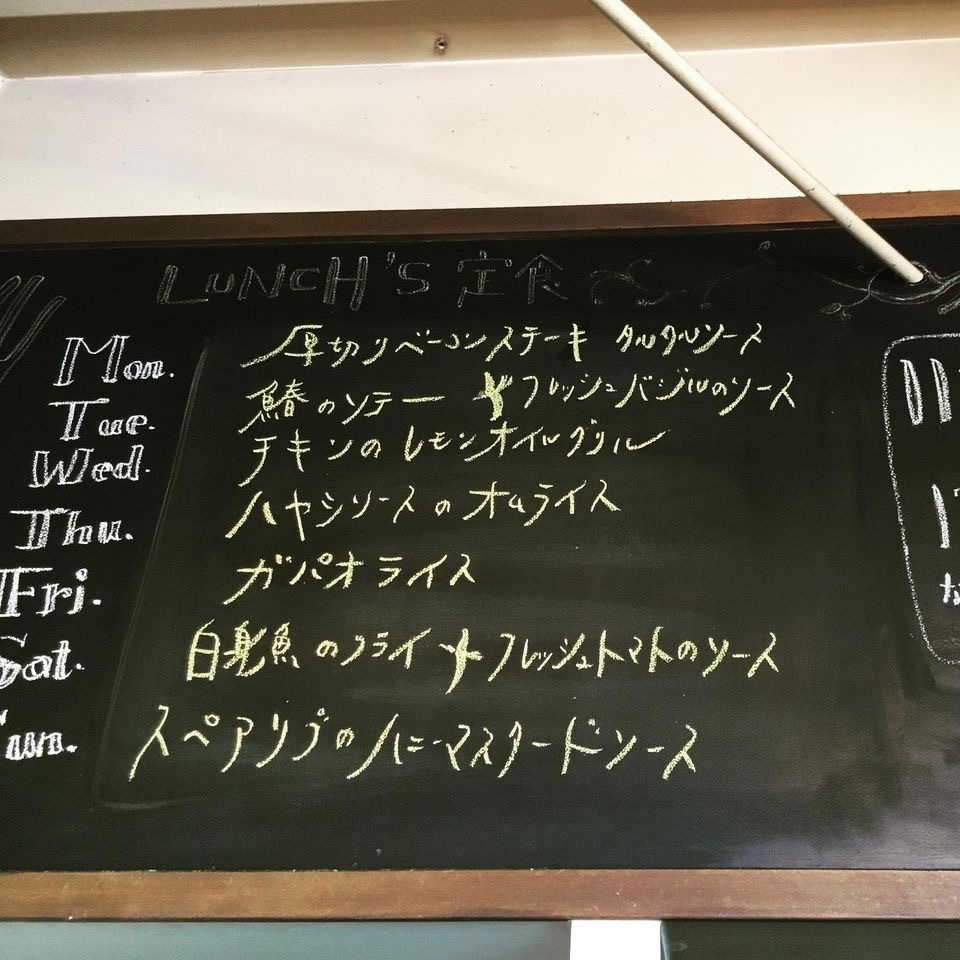 LUNCH'S 定食
Mon. 厚切りベーコンステーキ タルタルソース
Tue. 鰆のソテー フレッシュバジルのソース
Wed. チキンのレモンオイルグリル
Thu. ハヤシソースのオムライス
Fri. ガパオライス
Sat. 白身魚のフライ フレッシュトマトのソース
Sun. スペアリブのハニーマスタードソース